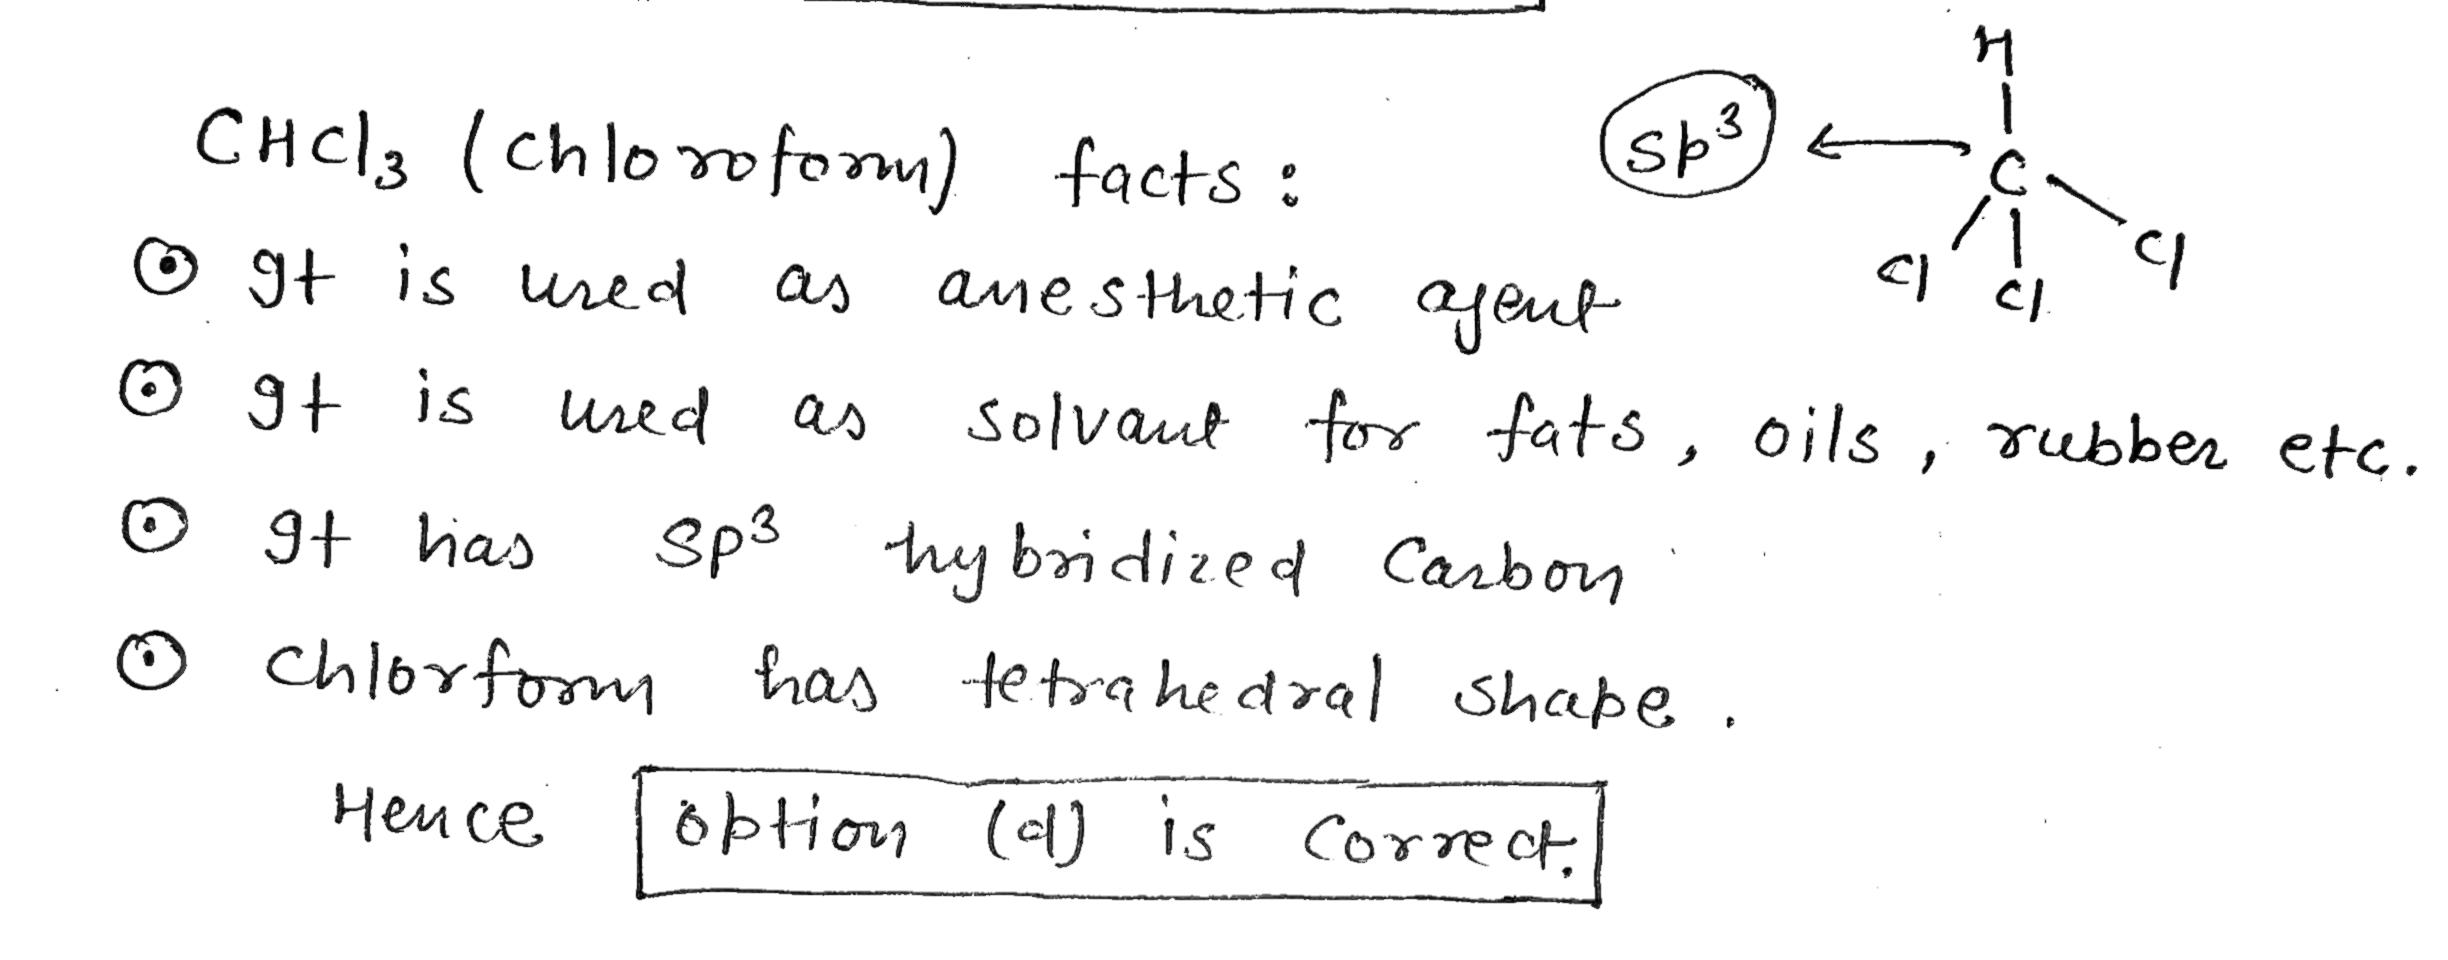 CHCl₃ (chloroform) facts :
It is used as anesthetic agent
It is used as solvant for fats, oils, rubber etc.
It has sp³ hybridized Carbon
Chlorform has tetrahedral shape.
Hence option (d) is correct.
sp³ ← C
H
Cl Cl Cl